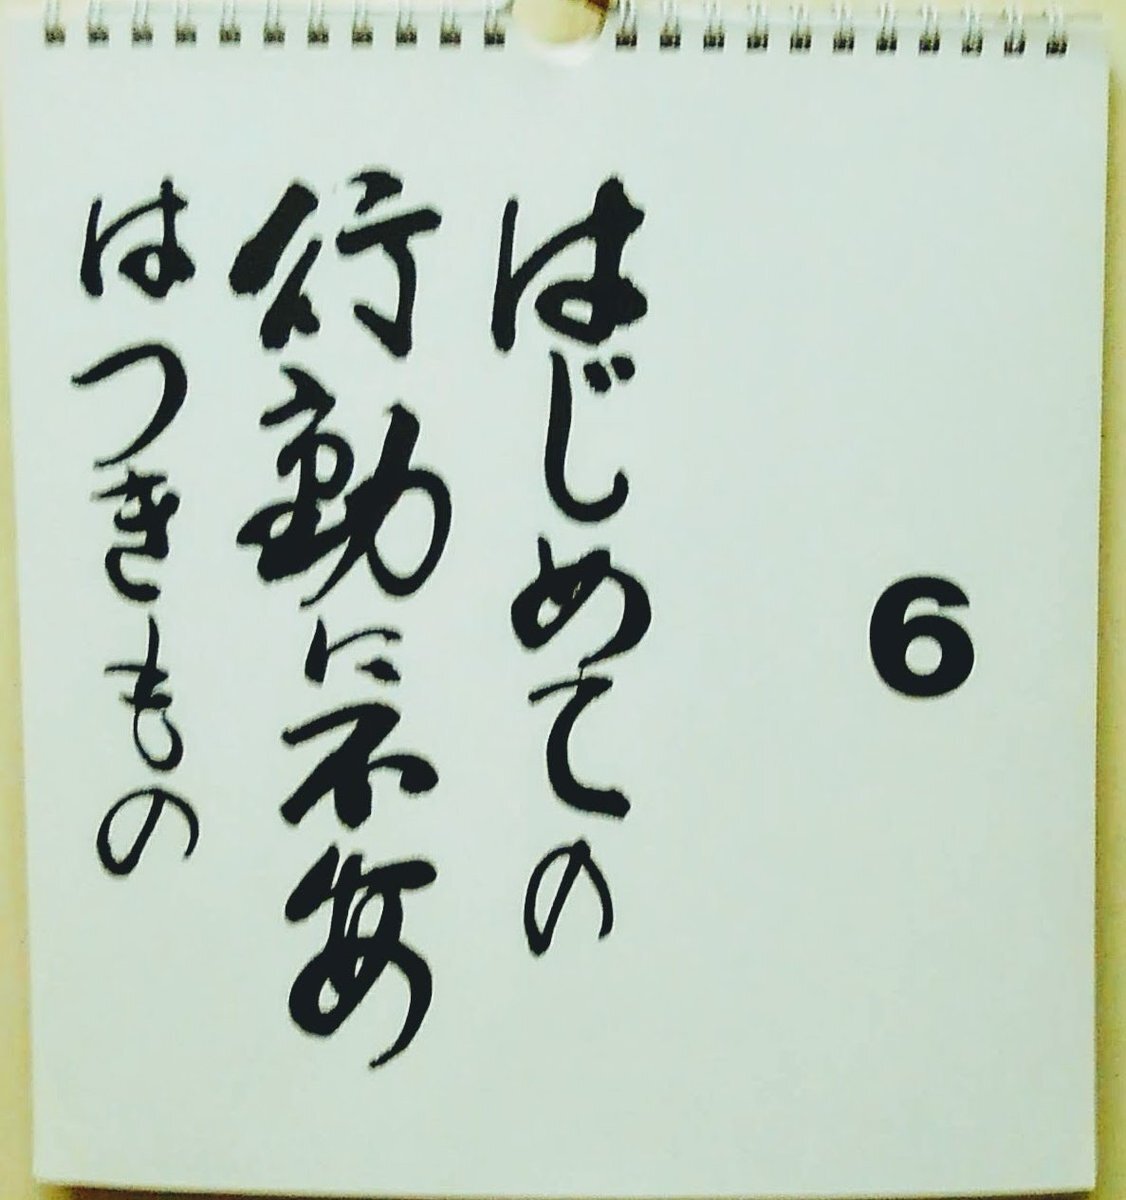 6
はじめての
行動に不安
はつきもの